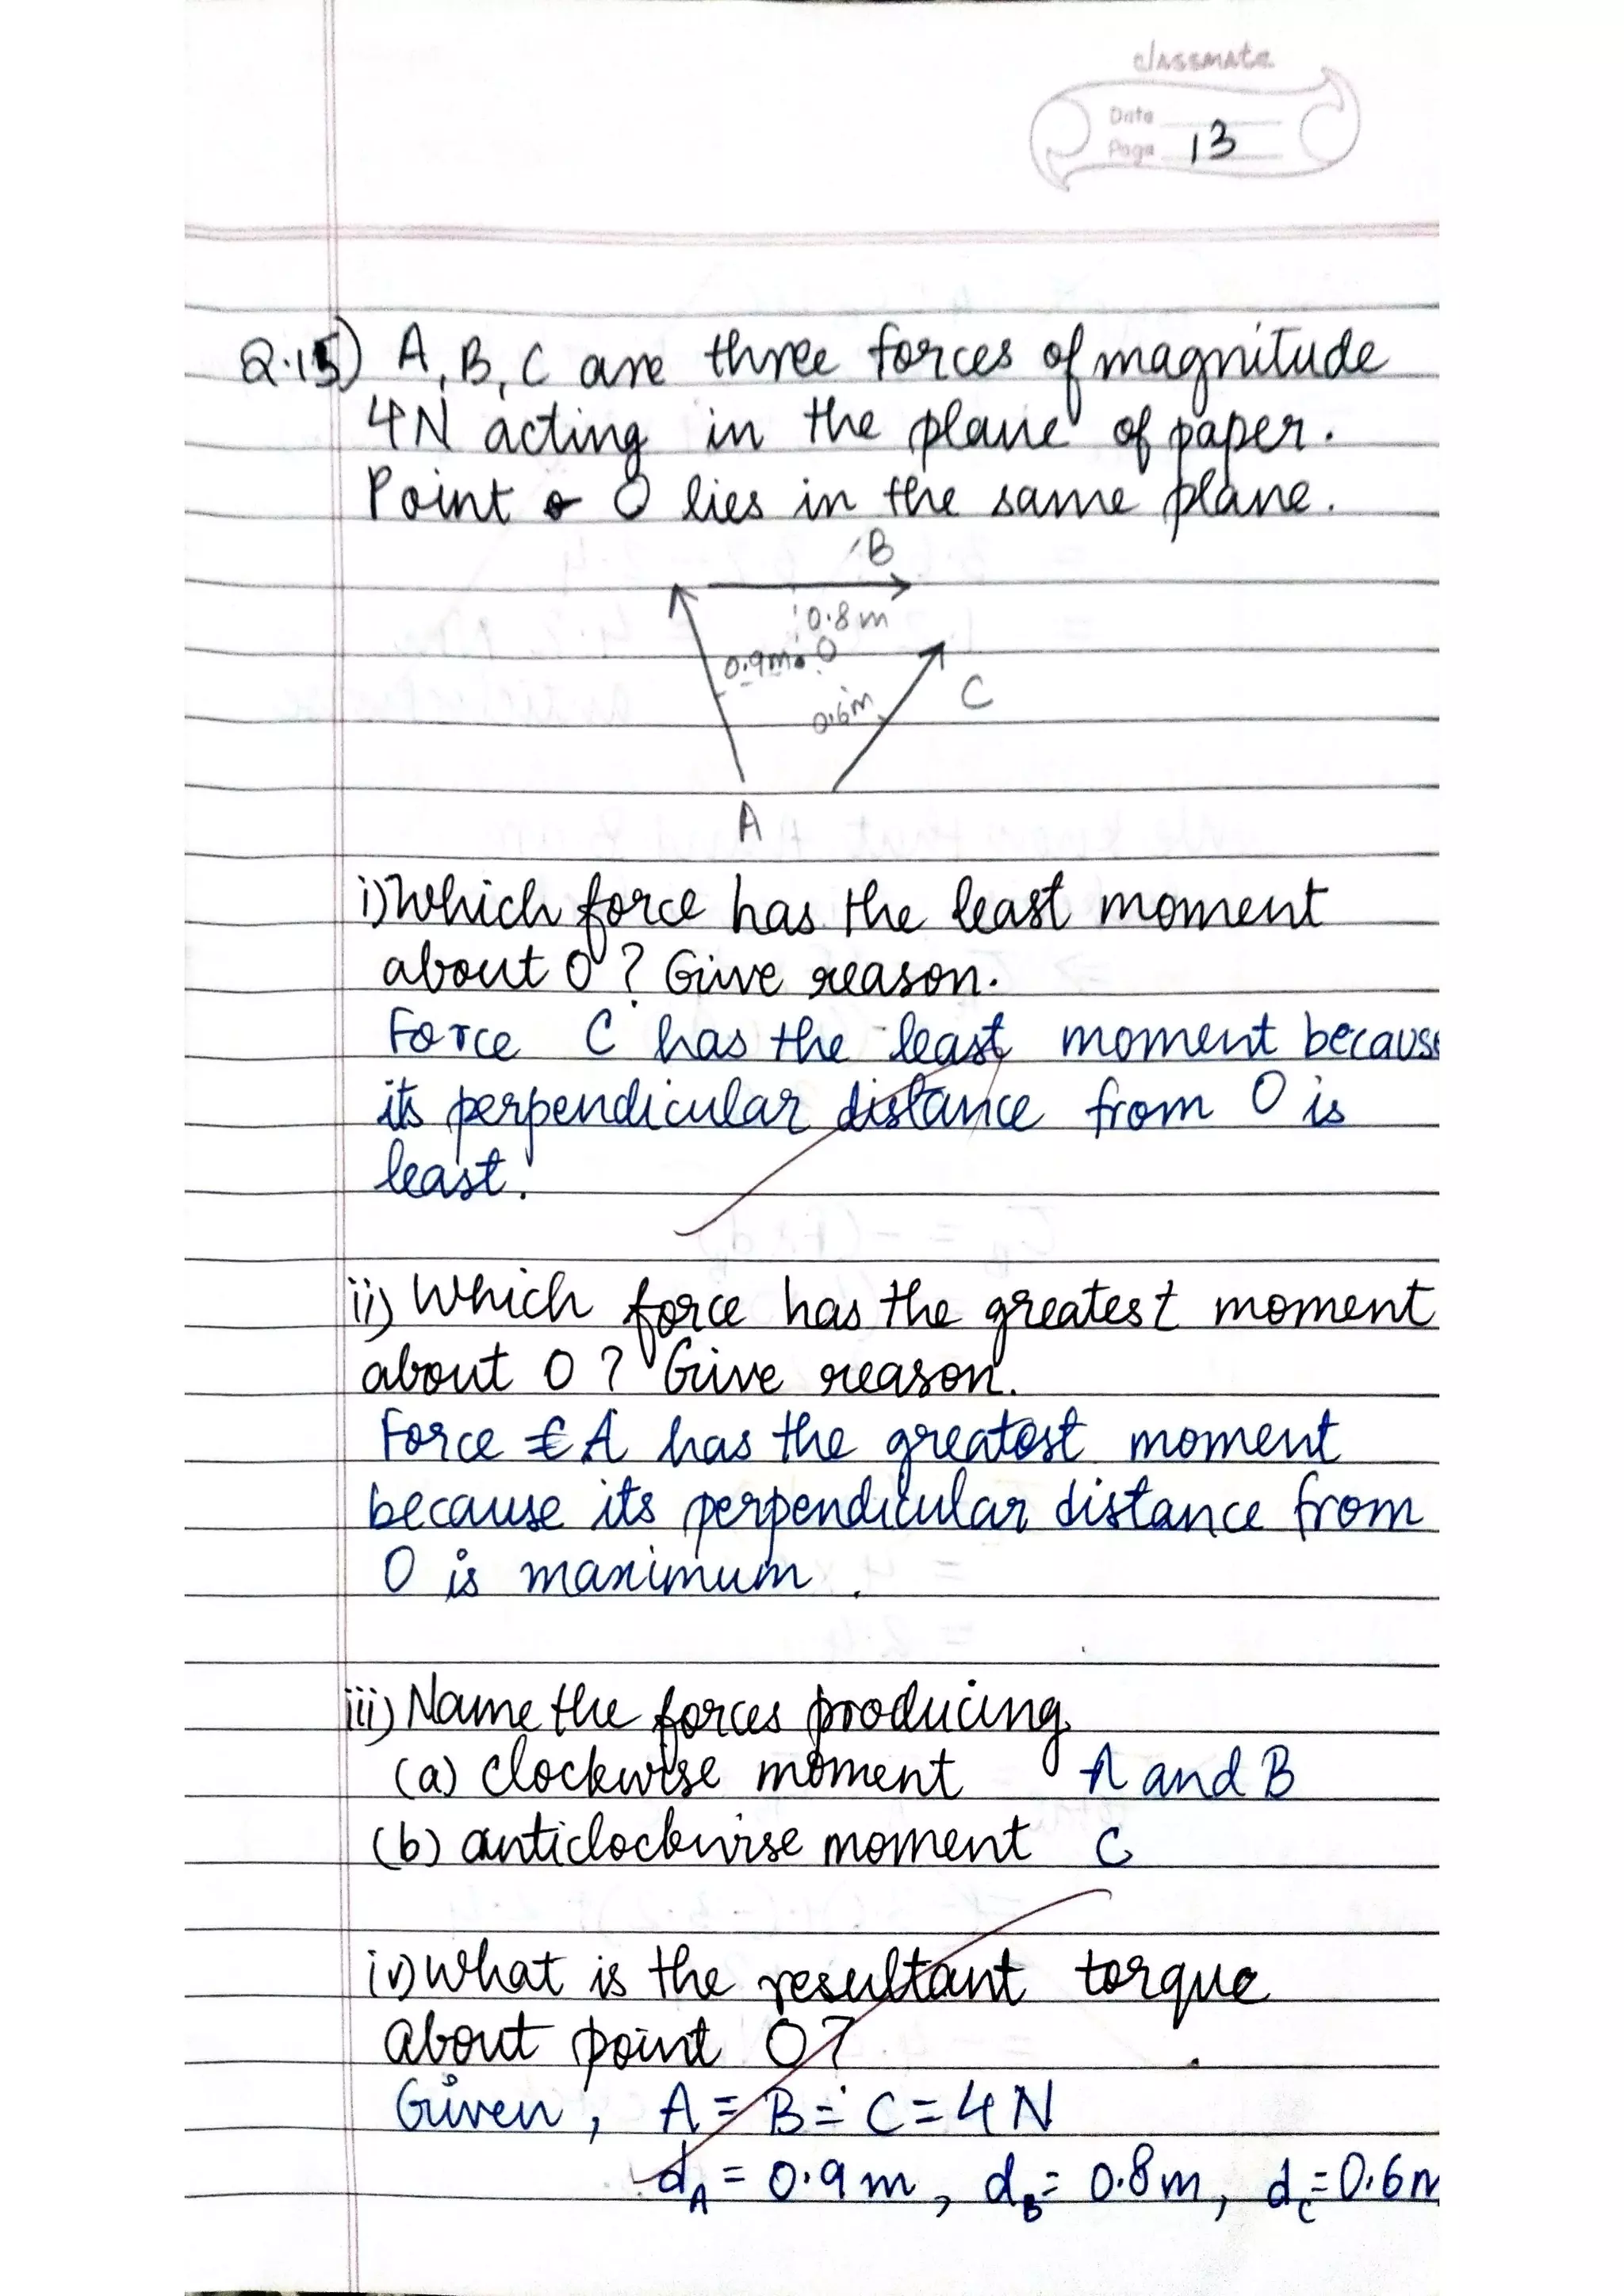 classmate
Date
Page 13
Q.15) A, B, C are three forces of magnitude
4N acting in the plane of paper.
Point O lies in the same plane.
B
0.8m
0.9m O
C
0.6m
A
i) Which force has the least moment
about O? Give reason.
Force C has the least moment because
its perpendicular distance from O is
least.
ii) Which force has the greatest moment
about O? Give reason.
Force A has the greatest moment
because its perpendicular distance from
O is maximum.
iii) Name the forces producing
(a) clockwise moment A and B
(b) anticlockwise moment C
iv) What is the resultant torque
about point O?
Given, A = B = C = 4N
dA = 0.9m, dB = 0.8m, dC = 0.6m